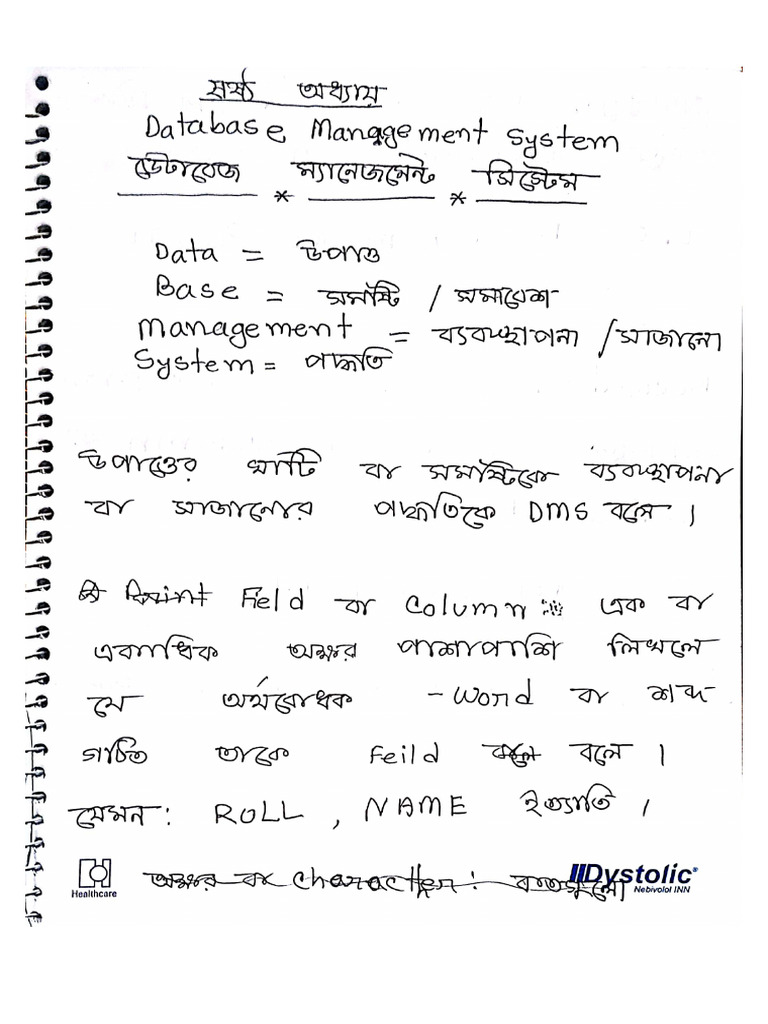 ষষ্ঠ অধ্যায়
Database Management System
ডেটাবেজ ম্যানেজমেন্ট সিস্টেম
* *
Data = উপাত্ত
Base = সমষ্টি / সমাবেশ
Management = ব্যবস্থাপনা / সাজানো
System = পদ্ধতি
উপাত্তের ঘাটি বা সমষ্টিকে ব্যবস্থাপনা
বা সাজানোর পদ্ধতিকে DMS বলে ।
Field বা Column : এক বা
একাধিক অক্ষর পাশাপাশি লিখলে
যে অর্থবোধক -Word বা শব্দ
গঠিত তাকে Feild বলে ।
যেমন : ROLL , NAME ইত্যাতি ।
অক্ষর বা character :
Healthcare
Dystolic®
Nebivolol INN